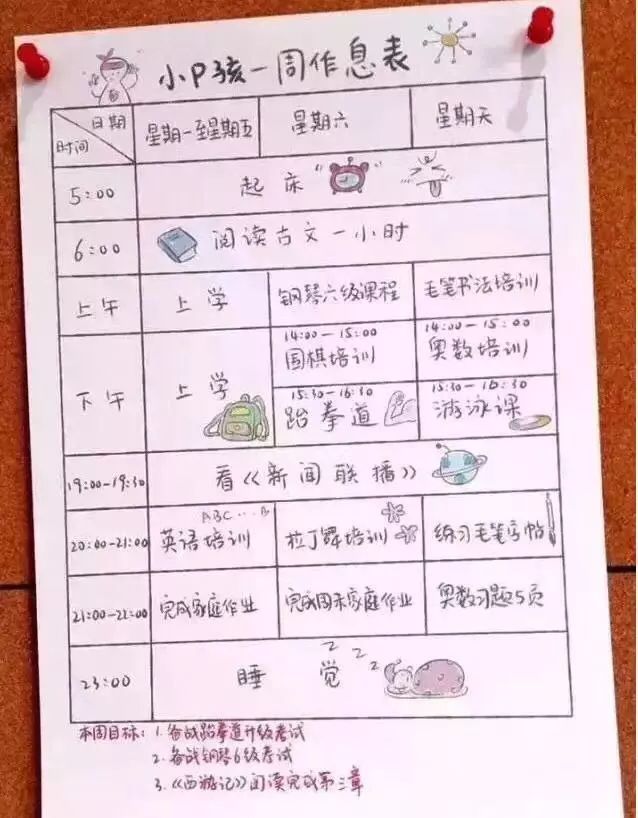 小P孩一周作息表
日期
时间
星期一至星期五 星期六 星期天
5:00 起床
6:00 阅读古文一小时
上午 上学 钢琴六级课程 毛笔书法培训
下午 上学
14:00-15:00 14:00-15:00
围棋培训 奥数培训
15:30-16:30 15:30-16:30
跆拳道 游泳课
19:00-19:30 看《新闻联播》
ABC...
20:00-21:00 英语培训 拉丁舞培训 练习毛笔字帖
21:00-22:00 完成家庭作业 完成周末家庭作业 奥数习题5页
23:00 睡觉 zzz
本周目标: 1. 备战跆拳道升级考试
2. 备战钢琴6级考试
3.《西游记》阅读完成第三章